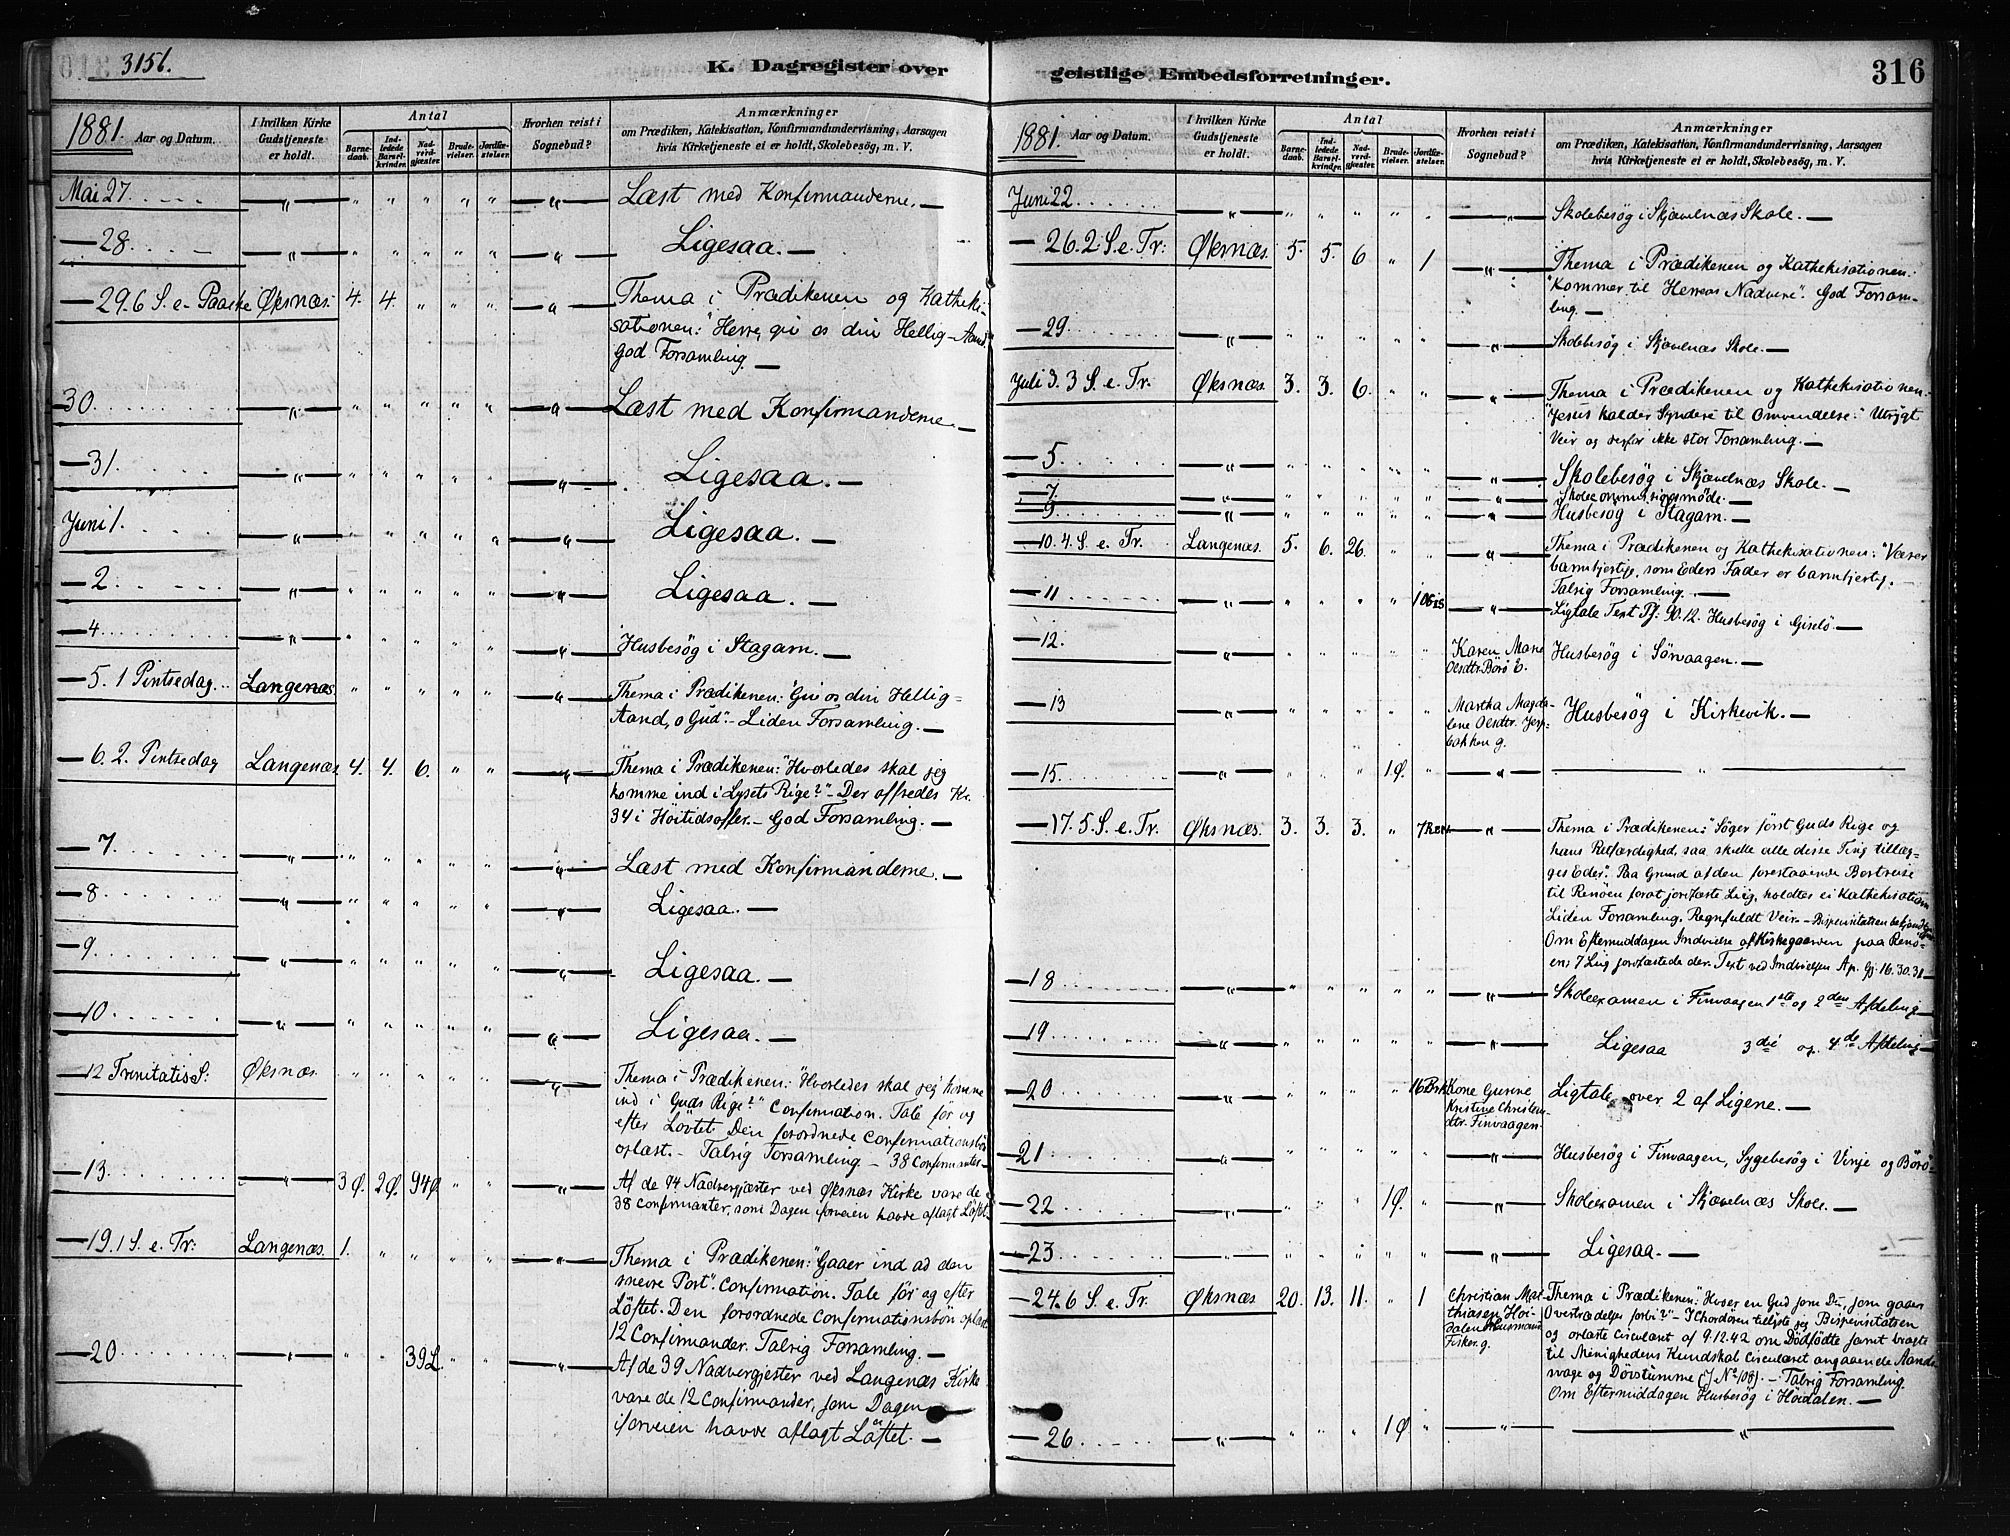 315b.
K. Dagregister over
1881. Aar og Datum.
I hvilken Kirke Gudstjeneste er holdt.
Antal
Barnedaab.
Indledede Barselkvinder.
Nadverdgjæster.
Brudevielser.
Jordfæstelser.
Hvorhen reist i Sognebud?
Anmærkninger
om Prædiken, Katekisation, Konfirmandundervisning, Aarsagen
hvis Kirketjeneste ei er holdt, Skolebesøg, m. V.
Mai 27. — " — " " " " " — " — Læst med Konfirmanderne. —
— 28. — " — " " " " " — " — Ligesaa. —
— 29. 6 S. e. Paaske Øksnæs. 4. 4. " " " — " — Thema i Prædikenen og Katheki-
sationen: "Herre, giv os din Hellig-Aand."
God Forsamling. —
30. — " — " " " " " — " — Læst med Konfirmanderne. —
— 31. — " — " " " " " — " — Ligesaa. —
Juni 1. — " — " " " " " — " — Ligesaa. —
— 2. — " — " " " " " — " — Ligesaa. —
— 4 — " — " " " " " — " — Husbesøg i Stagam. —
— 5. 1 Pintsedag. Langenæs. " " " " " — " — Thema i Prædikenen: "Giv os din Hellig-
Aand, o Gud". – Liden Forsamling. —
— 6. 2. Pintsedag Langenæs 4. 4. 6. " " — " — Thema i Prædikenen: "Hvorledes skal jeg
komme ind i Lysets Rige?" – Der offredes Kr.
34 i Høitidsoffer. – God Forsamling. —
— 7. — " — " " " " " — " — Læst med Konfirmanderne. —
— 8 — " — " " " " " — " — Ligesaa. —
— 9. — " — " " " " " — " — Ligesaa. —
— 10. — " — " " " " " — " — Ligesaa. —
— 12 Trinitatis S: Øksnæs. " " " " " — " — Thema i Prædikenen: "Hvorledes skal jeg komme
ind i Guds Rige?" Confirmation. Tale før og
efter Løvtet. Den forordnede Confirmationsbøn
oplæst. – Talrig Forsamling – 38 Confirmanter –
— 13. — " — 3Ø. 2Ø. 94Ø " " — " — Af de 94 Nadvergjæster ved Øksnæs Kirke vare de
38 Confirmanter, som Dagen forveien havde aflagt Løftet.
— 19. 1 S. e. Tr: Langenæs. 1. " " " " — " — Thema i Prædikenen: "Gaaer ind ad den
snevre Port". Confirmation. Tale før og efter
Løftet. Den forordnede Confirmationsbøn oplæst
12 Confirmander. Talrig Forsamling. —
— 20 — " — " " 39L. " " — " — Af de 39 Nadvergjester ved Langenæs Kirke
vare de 12 Confirmander, som Dagen
iforveien havde aflagt Løftet. —
geistlige Embedsforretninger.
316
1881. Aar og Datum.
I hvilken Kirke Gudstjeneste er holdt.
Antal
Barnedaab.
Indledede Barselkvinder.
Nadverdgjæster.
Brudevielser.
Jordfæstelser.
Hvorhen reist i Sognebud?
Anmærkninger
om Prædiken, Katekisation, Konfirmandundervisning, Aarsagen
hvis Kirketjeneste ei er holdt, Skolebesøg, m. V.
Juni 22. — " — " " " " " — " — Skolebesøg i Skjævelnæs Skole. —
— 26. 2 S. e. Tr: Øksnæs. 5. 5. 6 " 1 — " — Thema i Prædikenen og Kathekisationen:
"Kommer til Herrens Nadvere". God Forsam-
ling. —
— 29 — " — " " " " " — " — Skolebesøg i Skjævelnæs Skole. —
Juli 3. 3 S. e. Tr. Øksnæs. 3. 3. 6. " " — " — Thema i Prædikenen og Kathekisationen:
"Jesus kalder Syndere til Omvendelse." Utrygt
Veir og derfor ikke stor Forsamling. —
— 5. — " — " " " " " — " — Skolebesøg i Skjævelnæs Skole. —
— 7. — " — " " " " " — " — Skolecommissionsmøde. —
— 9 — " — " " " " " — " — Husbesøg i Stagam. —
— 10. 4. S. e. Tr. Langenæs. 5. 6. 26. " " — " — Thema i Prædikenen og Kathekisationen: "Værer
barmhjertige, som Eders Fader er barmhjertig.
Talrig Forsamling. —
— 11 — " — " " " " 10 Gis — " — Ligtale Text Ps. 90.12. Husbesøg i Giselø. —
— 12. — " — " " " " " Karen Marie
Olsdtr Børø E. Husbesøg i Sørvaagen. —
— 13 — " — " " " " " Martha Magda-
lene Olsdtr. Jesp-
bakken g. Husbesøg i Kirkevik. —
— 15. — " — " " " 1Ø. " — " — — " —
— 17. 5. S. e. Tr. Øksnæs. 3. 3. 3. " 7 Ren. — " — Thema i Prædikenen: "Søger først Guds Rige og
hans Retfærdighed, saa skulle alle disse Ting tillæg-
ges Eder". Paa Grund af den forestaaende Bortreise
til Renøen forat jordfæste Liig, holdtes ei Kathekisation
Liden Forsamling. Regnfuldt Veir. – Bispevisitatsen bekjendtgjort
Om Eftermiddagen Indvielse af Kirkegaarden paa Renø-
en; 7 Liig jordfæstede der. Text ved Indvielsen Ap. Gj. 16.30.31 —
— 18 — " — " " " " " — " — Skoleexamen i Finvaagen 1ste og 2den Afdeling —
— 19. — " — " " " " " — " — Ligesaa 3die og 4de Afdeling —
— 20 — " — " " " " 16 Brk Kone Gurine
Kristine Christens-
dtr. Finvaagen. Ligtale over 2 af Ligene. —
— 21 — " — " " " " " — " — Husbesøg i Finvaagen, Sygebesøg i Vinje og Børø –
— 22 — " — " " " 1Ø. " — " — Skoleexamen i Skjævelnæs Skole. —
— 23 — " — " " " " " — " — Ligesaa. —
— 24. 6 S. e. Tr. Øksnæs. 20. 13. 11. " 1 Christian Mat-
thiasen Høi-
dalen Husmand
Fisker. g. Thema i Prædikenen: "Hvo er en Gud som Du, som gaaer
Overtrædelse forbi?" – I Chordøren tillyste jeg Bispevisitatsen
og oplæste Circulæret af 9.12.42 om Dødfødte samt bragte
til Menighedens Kundskab Circulæret angaaende Aands-
svage og Døvstumme (J No 108). – Talrig Forsamling.
Om Eftermiddagen Husbesøg i Høidalen. —
— 26 — " — " " " 1Ø " — " — — " —